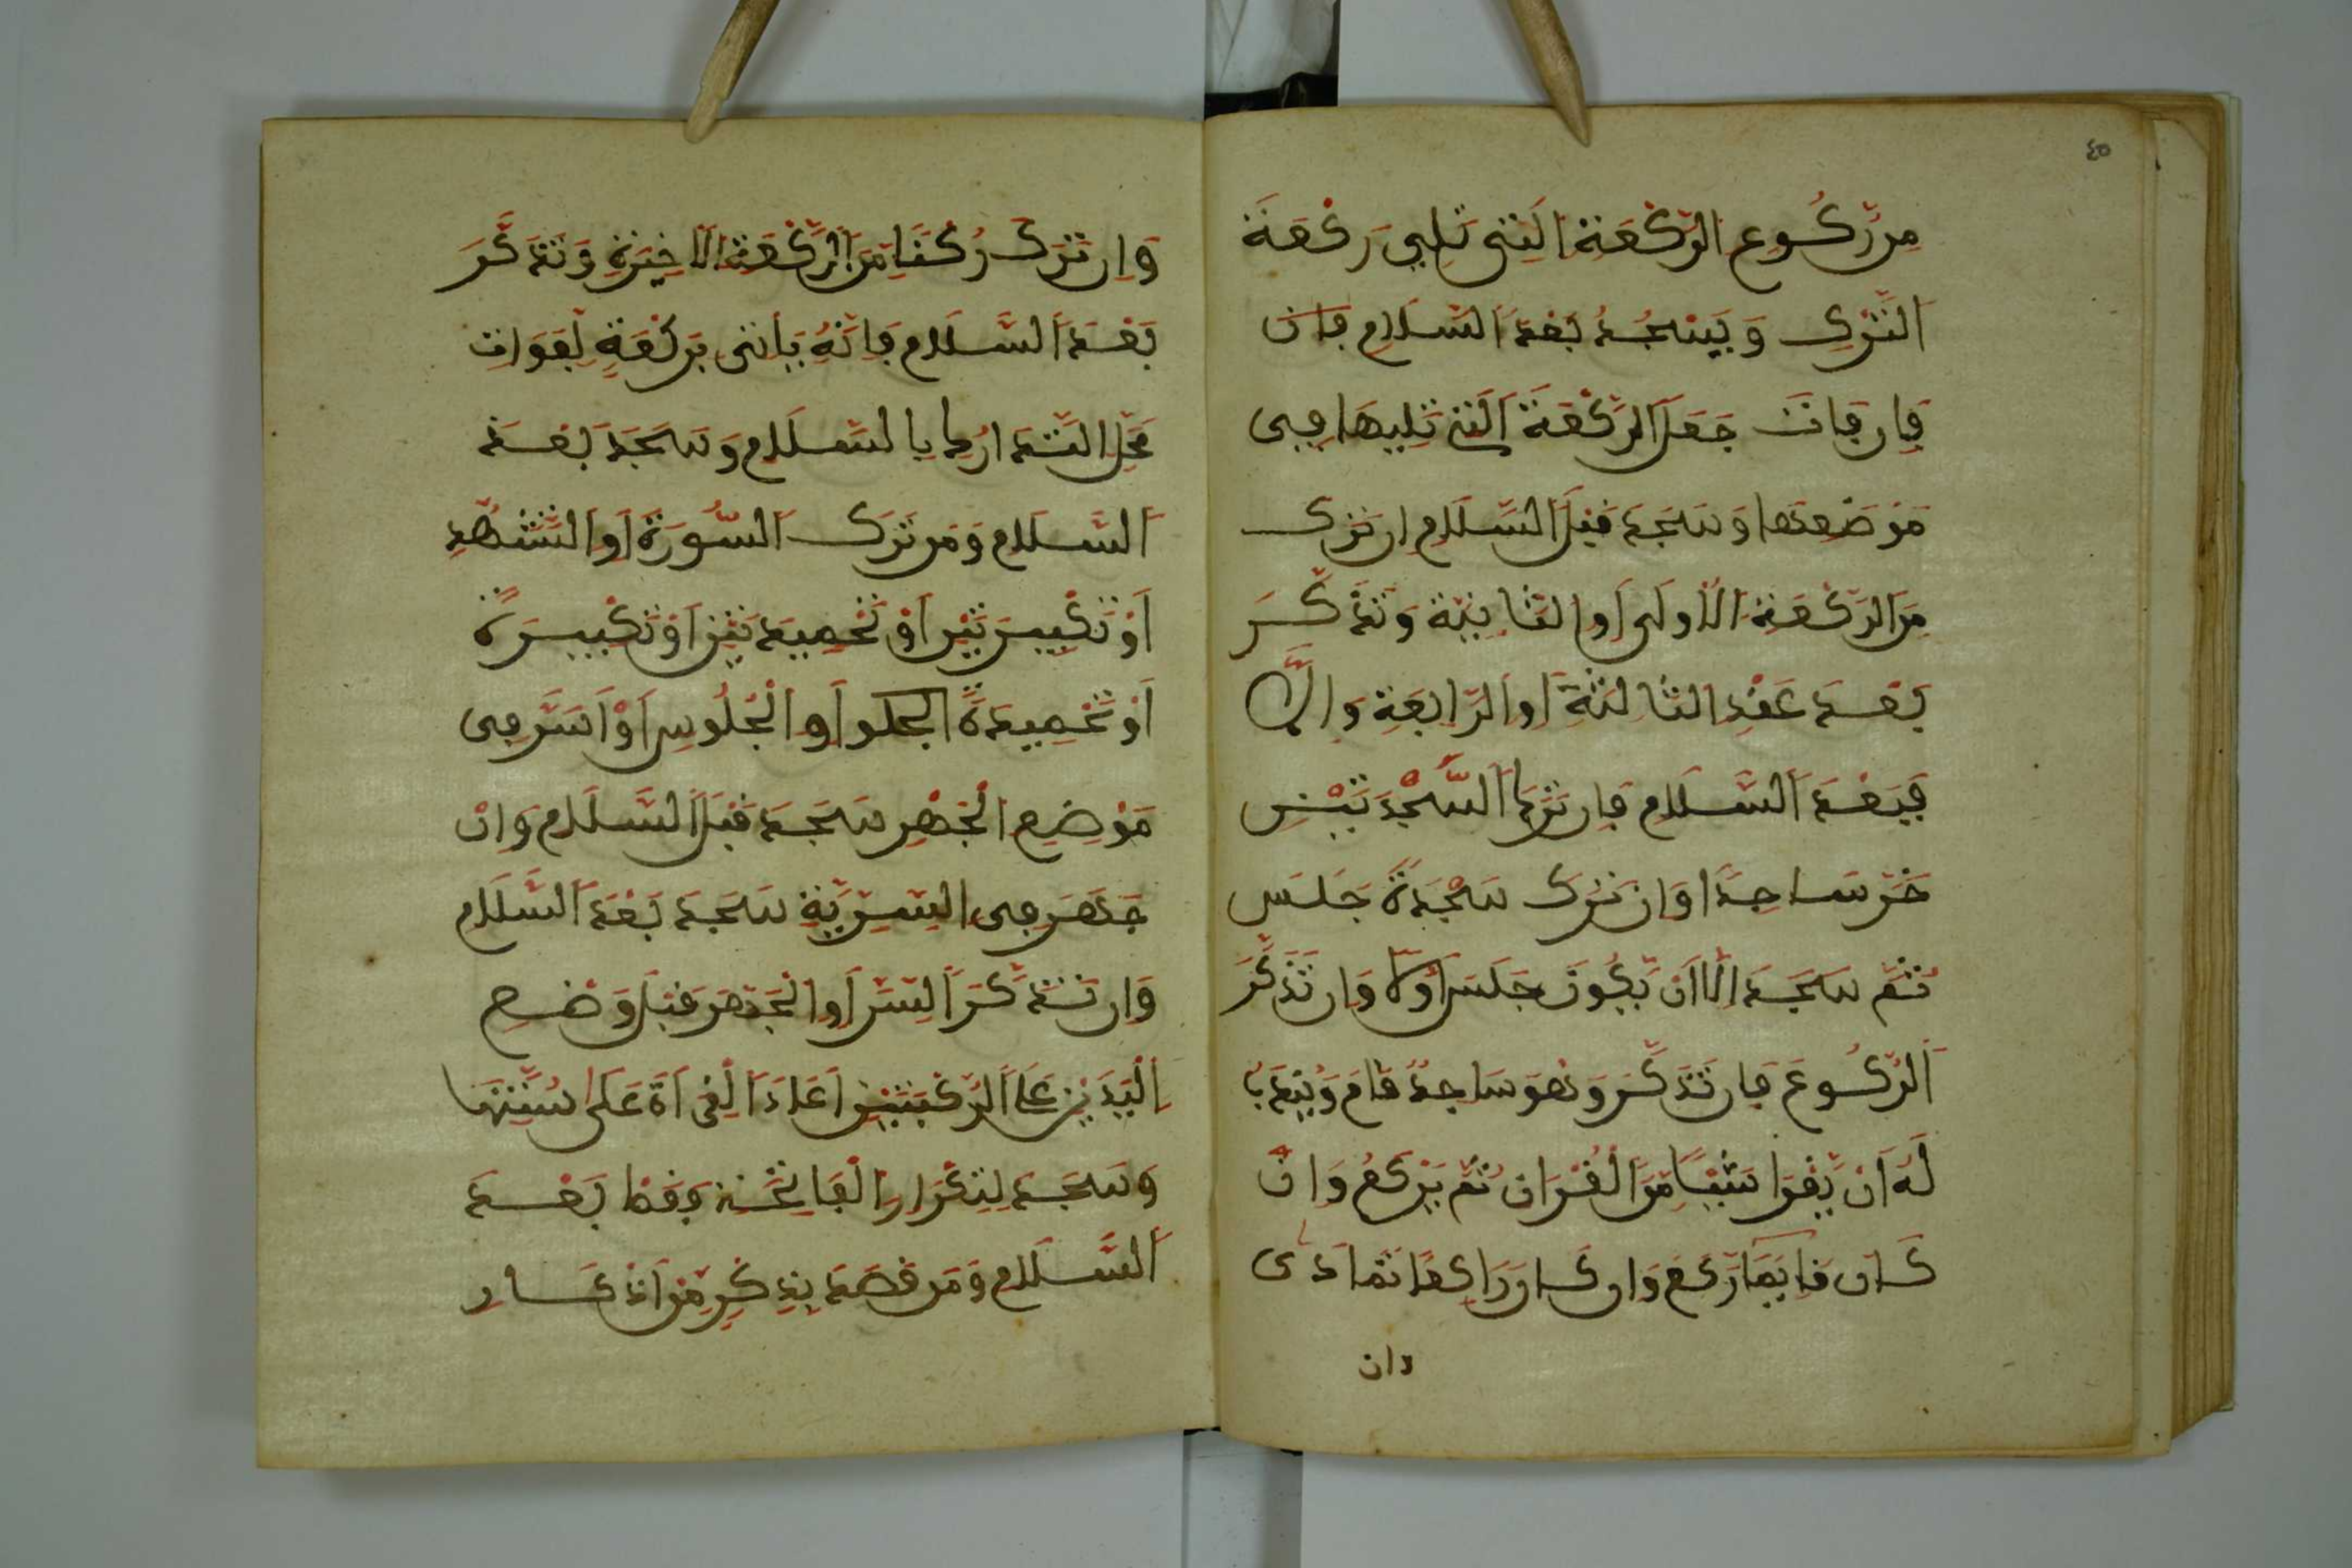 ٤٥
مِن رُّكُوعِ الرَّكْعَةِ الَّتِي تَلِي رَكْعَةَ
التَّرْكِ وَيَسْجُدُ بَعْدَ السَّلَامِ فان
فَإِن فَاتَ جَعَلَ الرَّكْعَةَ الَّتِي تَلِيهَا فِي
مَوْضَعِهَا وَسَجَدَ قَبْلَ السَّلَامِ إن تَرَكَ
مِنَ الرَّكْعَةِ الْأُولَى أَوِ الثَّانِيَةِ وَتَذَكَّرَ
بَعْدَ عَقْدِ الثَّالِثَةِ أَوِ الرَّابِعَةِ وَإِلَّا
فَبَعْدَ السَّلَامِ فَإِن تَرَكَ السَّجْدَتَيْنِ
خَرَّ سَاجِدًا وَإِن تَرَكَ سَجْدَةً جَلَسَ
ثُمَّ سَجَدَ إِلَّا أَن يَكُونَ جَلَسَ أَوَّلًا وَإِن تَذَكَّرَ
الرُّكُوعَ فَإِن تَذَكَّرَ وَهُوَ سَاجِدٌ قَامَ وَيُنْدَبُ
لَهُ أَنْ يَقْرَأَ شَيْئًا مِنَ الْقُرْآنِ ثُمَّ يَرْكَعُ وَإِنْ
كَانَ قَائِمًا رَكَعَ وَإِن كَانَ رَاكِعًا تَمَادَى
وان
وَإِن تَرَكَ رُكْنًا مِنَ الرَّكْعَةِ الْأَخِيرَةِ وَتَذَكَّرَ
بَعْدَ السَّلَامِ فَإِنَّهُ يَأْتِي بِرَكْعَةٍ لِفَوَاتِ
مَحَلِّ التَّدَارُكِ بِالسَّلَامِ وَسَجَدَ بَعْدَ
السَّلَامِ وَمَن تَرَكَ السُّورَةَ أَوِ التَّشَهُّدِ
أَوْ تَكْبِيرَتَيْنِ أَوْ تَحْمِيدَتَيْنِ أَوْ تَكْبِيرَةً
أَوْ تَحْمِيدَةً أَوِ الْجُلُوسِ أَوْ أَسَرَّ فِي
مَوْضِعِ الْجَهْرِ سَجَدَ قَبْلَ السَّلَامِ وَإِنْ
جَهَرَ فِي السِّرِّيَّةِ سَجَدَ بَعْدَ السَّلَامِ
وَإِن تَذَكَّرَ السِّرَّ أَوِ الْجَهْرَ قَبْلَ وَضْعِ
الْيَدَيْنِ عَلَى الرُّكْبَتَيْنِ أَعَادَ الْقِرَاءَةَ عَلَى سُنَّتِهَا
وَسَجَدَ لِتِكْرَارِ الْفَاتِحَةِ فَقَط بَعْدَ
السَّلَامِ وَمَن قَصَدَ بِذِكْرٍ مِّنْ أَذْكَارِ